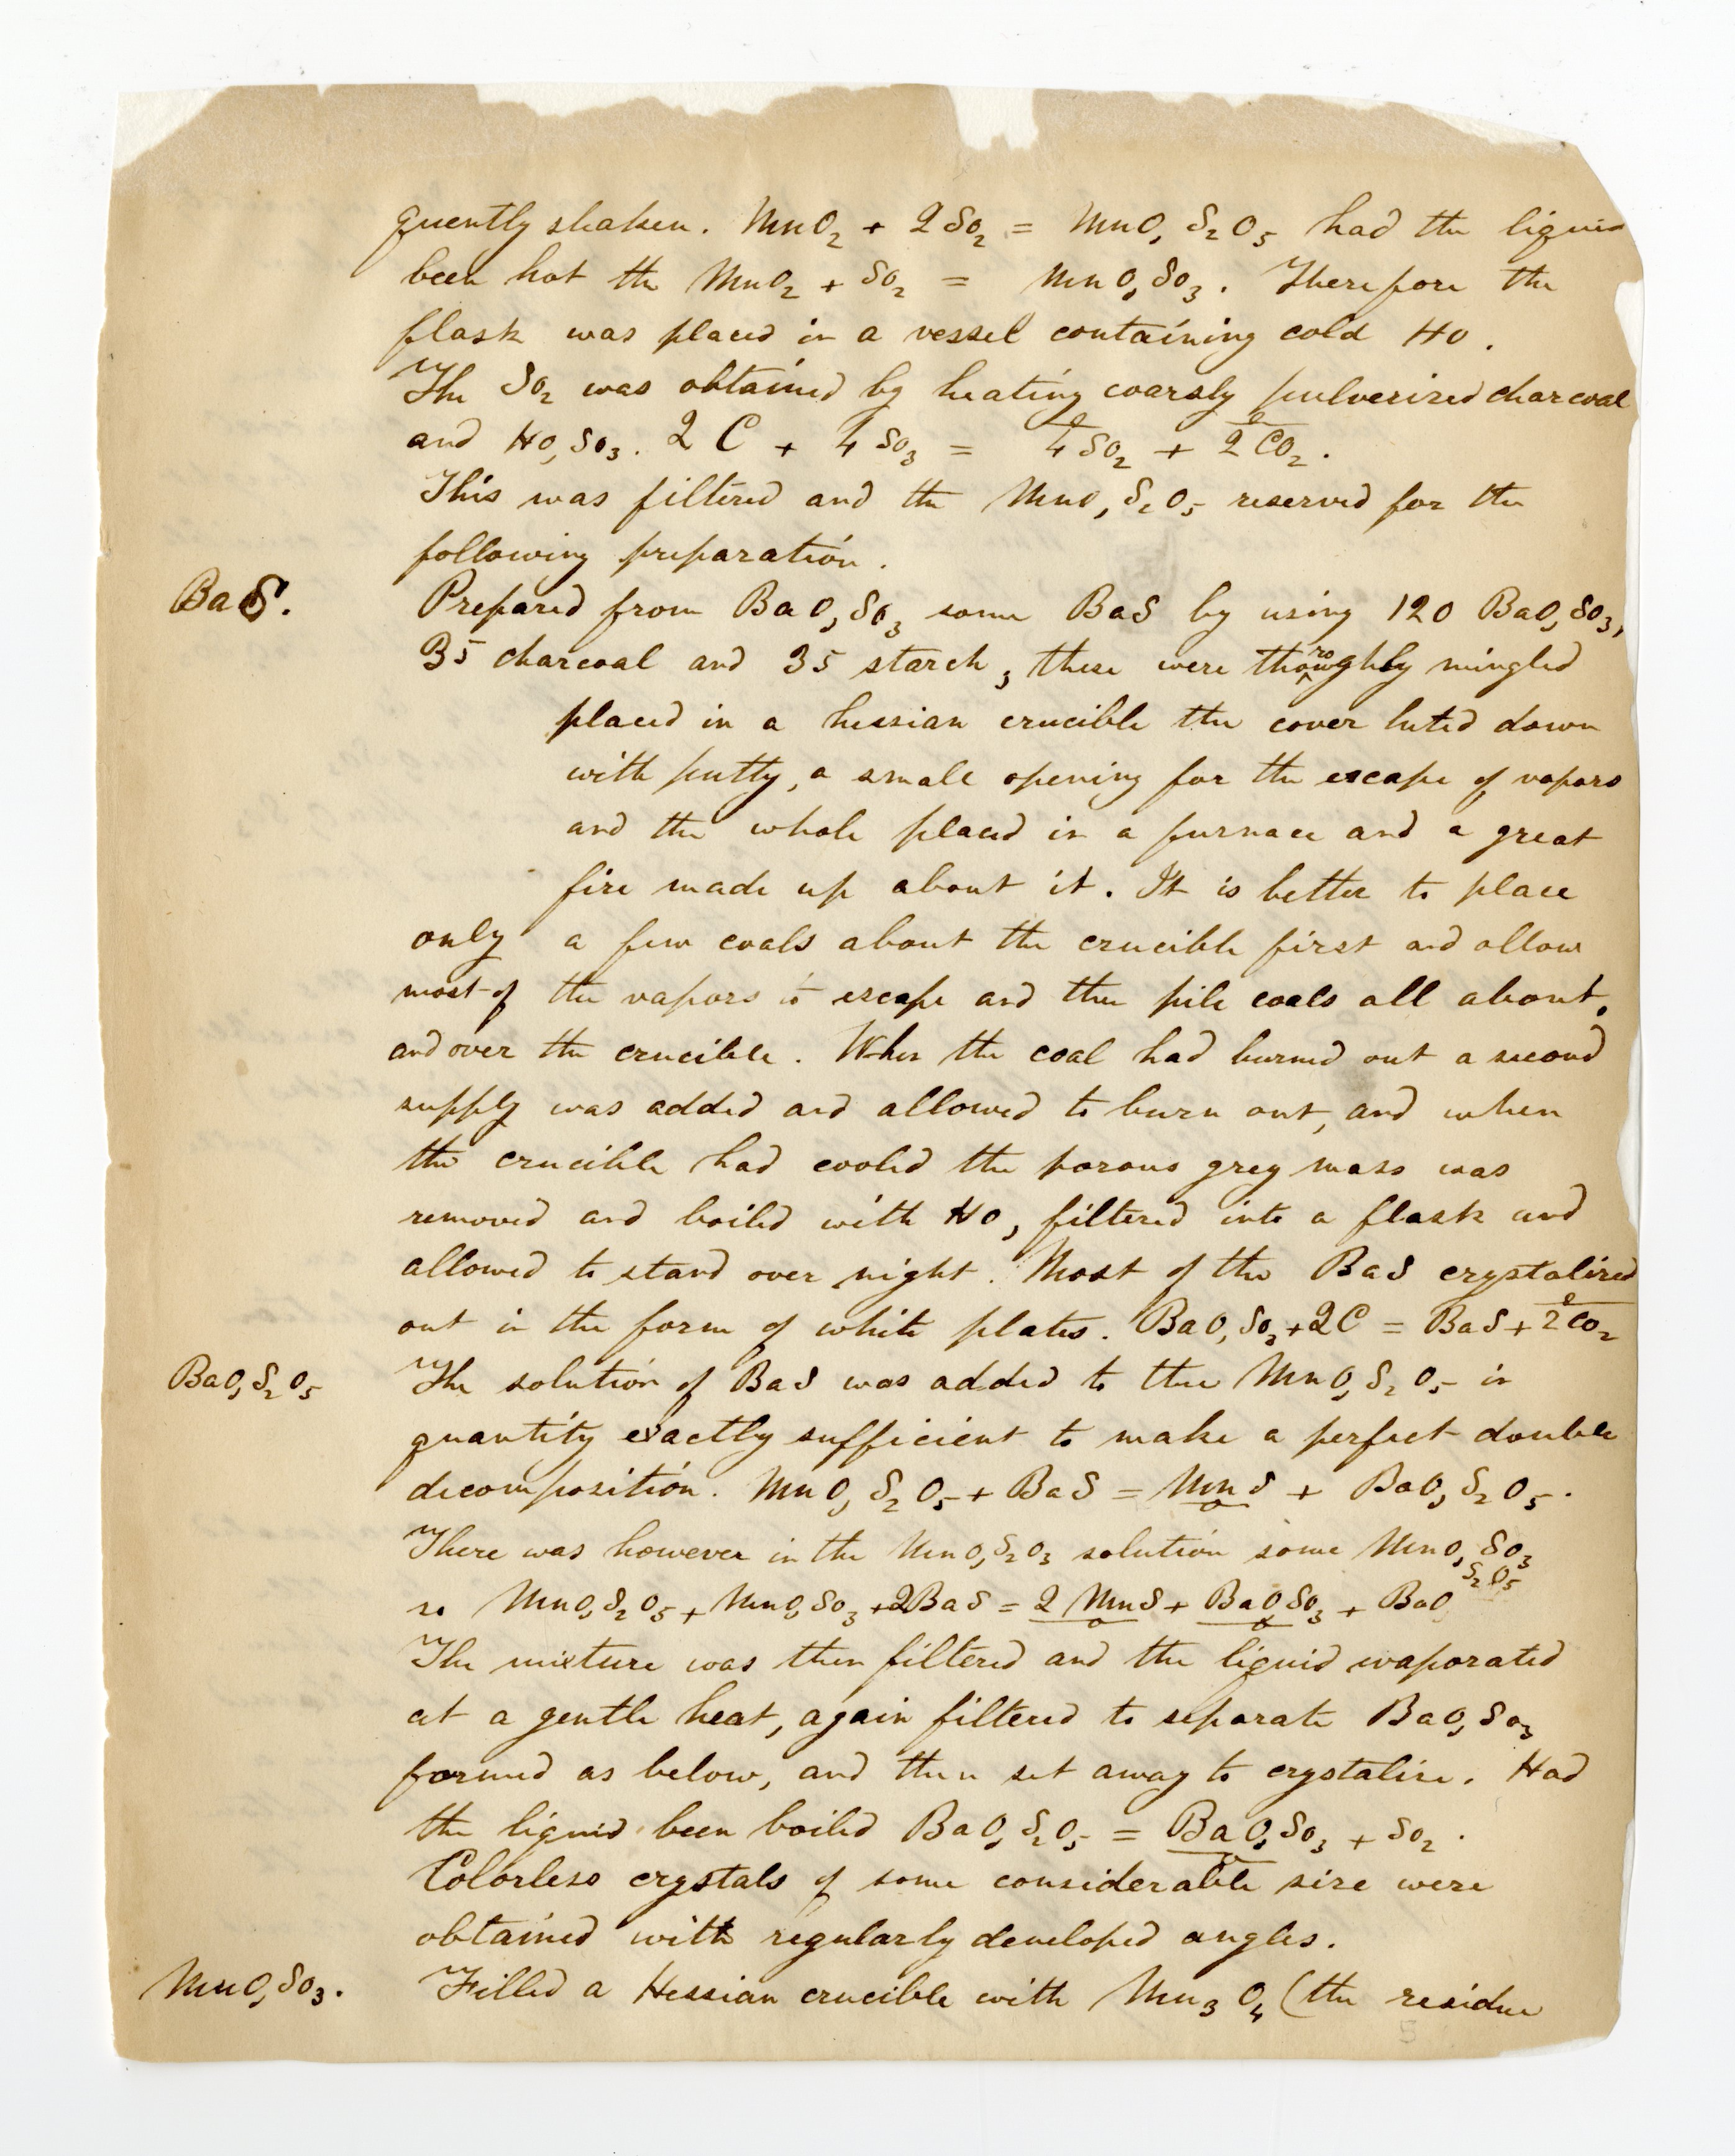 quently shaken. MnO₂ + 2SO₂ = MnO, S₂O₅ had the liquid
been hot the MnO₂ + SO₂ = MnO, SO₃. Therefore the
flask was placed in a vessel containing cold HO.
The SO₂ was obtained by heating coarsly pulverized charcoal
and HO, SO₃. 2 C + 4 SO₃ = 4 SO₂ + 2 CO₂.
This was filtered and the MnO, S₂O₅ reserved for the
following preparation.
BaS. Prepared from BaO, SO₃ some BaS by using 120 BaO, SO₃,
35 charcoal and 35 starch, these were thoroughly mingled
placed in a hessian crucible the cover luted down
with putty, a small opening for the escape of vapors
and the whole placed in a furnace and a great
fire made up about it. It is better to place
only a few coals about the crucible first and allow
most of the vapors to escape and then pile coals all about
and over the crucible. When the coal had burned out a second
supply was added and allowed to burn out, and when
the crucible had cooled the porous grey mass was
removed and boiled with HO, filtered into a flask and
allowed to stand over night. Most of the BaS crystalized
out in the form of white plates. BaO, SO₃ + 2C = BaS + 2CO₂
BaO, S₂O₅ The solution of BaS was added to the MnO, S₂O₅ in
quantity exactly sufficient to make a perfect double
decomposition. MnO, S₂O₅ + BaS = MnS + BaO, S₂O₅.
There was however in the MnO, S₂O₃ solution some MnO, SO₃
so MnO, S₂O₅ + MnO, SO₃ + 2BaS = 2 MnS + BaO SO₃ + BaO, S₂O₅
The mixture was then filtered and the liquid evaporated
at a gentle heat, again filtered to separate BaO, SO₃
formed as below, and then set away to crystalize. Had
the liquid been boiled BaO, S₂O₅ = BaO, SO₃ + SO₂.
Colorless crystals of some considerable size were
obtained with regularly developed angles.
MnO, SO₃. Filled a Hessian crucible with Mn₃O₄ (the residue
5